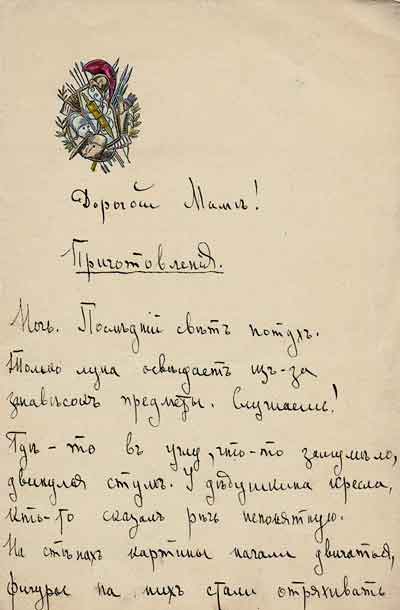 Дорогой Мамѣ!
Приготовленія.
Ночь. Послѣдній свѣтъ потухъ.
Только луна освѣщаетъ изъ-за
занавѣсокъ предметы. Слушаемъ!
Гдѣ-то въ углу, что-то зашумѣло,
двинулся стулъ. У дѣдушкина кресла,
кто-то сказалъ рѣчь непонятную.
На стѣнахъ картины начали двигаться,
фигуры на нихъ стали отряхивать